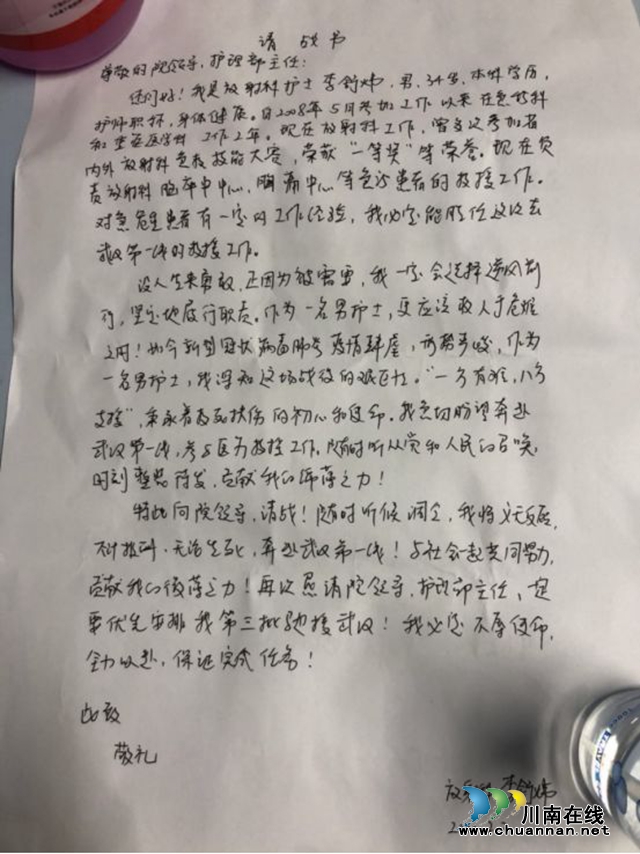 请战书
尊敬的院领导,护理部主任:
您们好!我是放射科护士李舒炜,男,34岁,本科学历,
护师职称,身体健康。自2008年5月参加工作以来在急诊科
和重症医学科工作2年。现在放射科工作,曾多次参加省
内外放射科竞技技能大赛,荣获“一等奖”等荣誉。现在负
责放射科脑卒中中心,胸痛中心等急诊患者的救援工作。
对急危重患者有一定的工作经验,我必定能胜任这次去
武汉第一线的救援工作。
没人生来勇敢,正因为被需要,我一定会选择逆风前
行,坚定地履行职责。作为一名男护士,更应该救人于危难
之间!如今新型冠状病毒肺炎疫情肆虐,形势严峻,作为
一名男护士,我深知这场战役的艰巨性。“一方有难,八方
支援”,秉承着救死扶伤的初心和使命。我恳切盼望奔赴
武汉第一线,参与医疗救援工作。随时听从党和人民的召唤,
时刻整装待发,贡献我的绵薄之力!
特此向院领导,请战!随时听候调令,我将义无反顾,
不计报酬.无论生死,奔赴武汉第一线!与社会一起共同努力,
贡献我的绵薄之力!再次恳请院领导,护理部主任,
优先安排我第三批驰援武汉!我必定不辱使命,
全力以赴,保证完成任务!
此致
敬礼
李舒炜
川南在线
www.chuannan.net